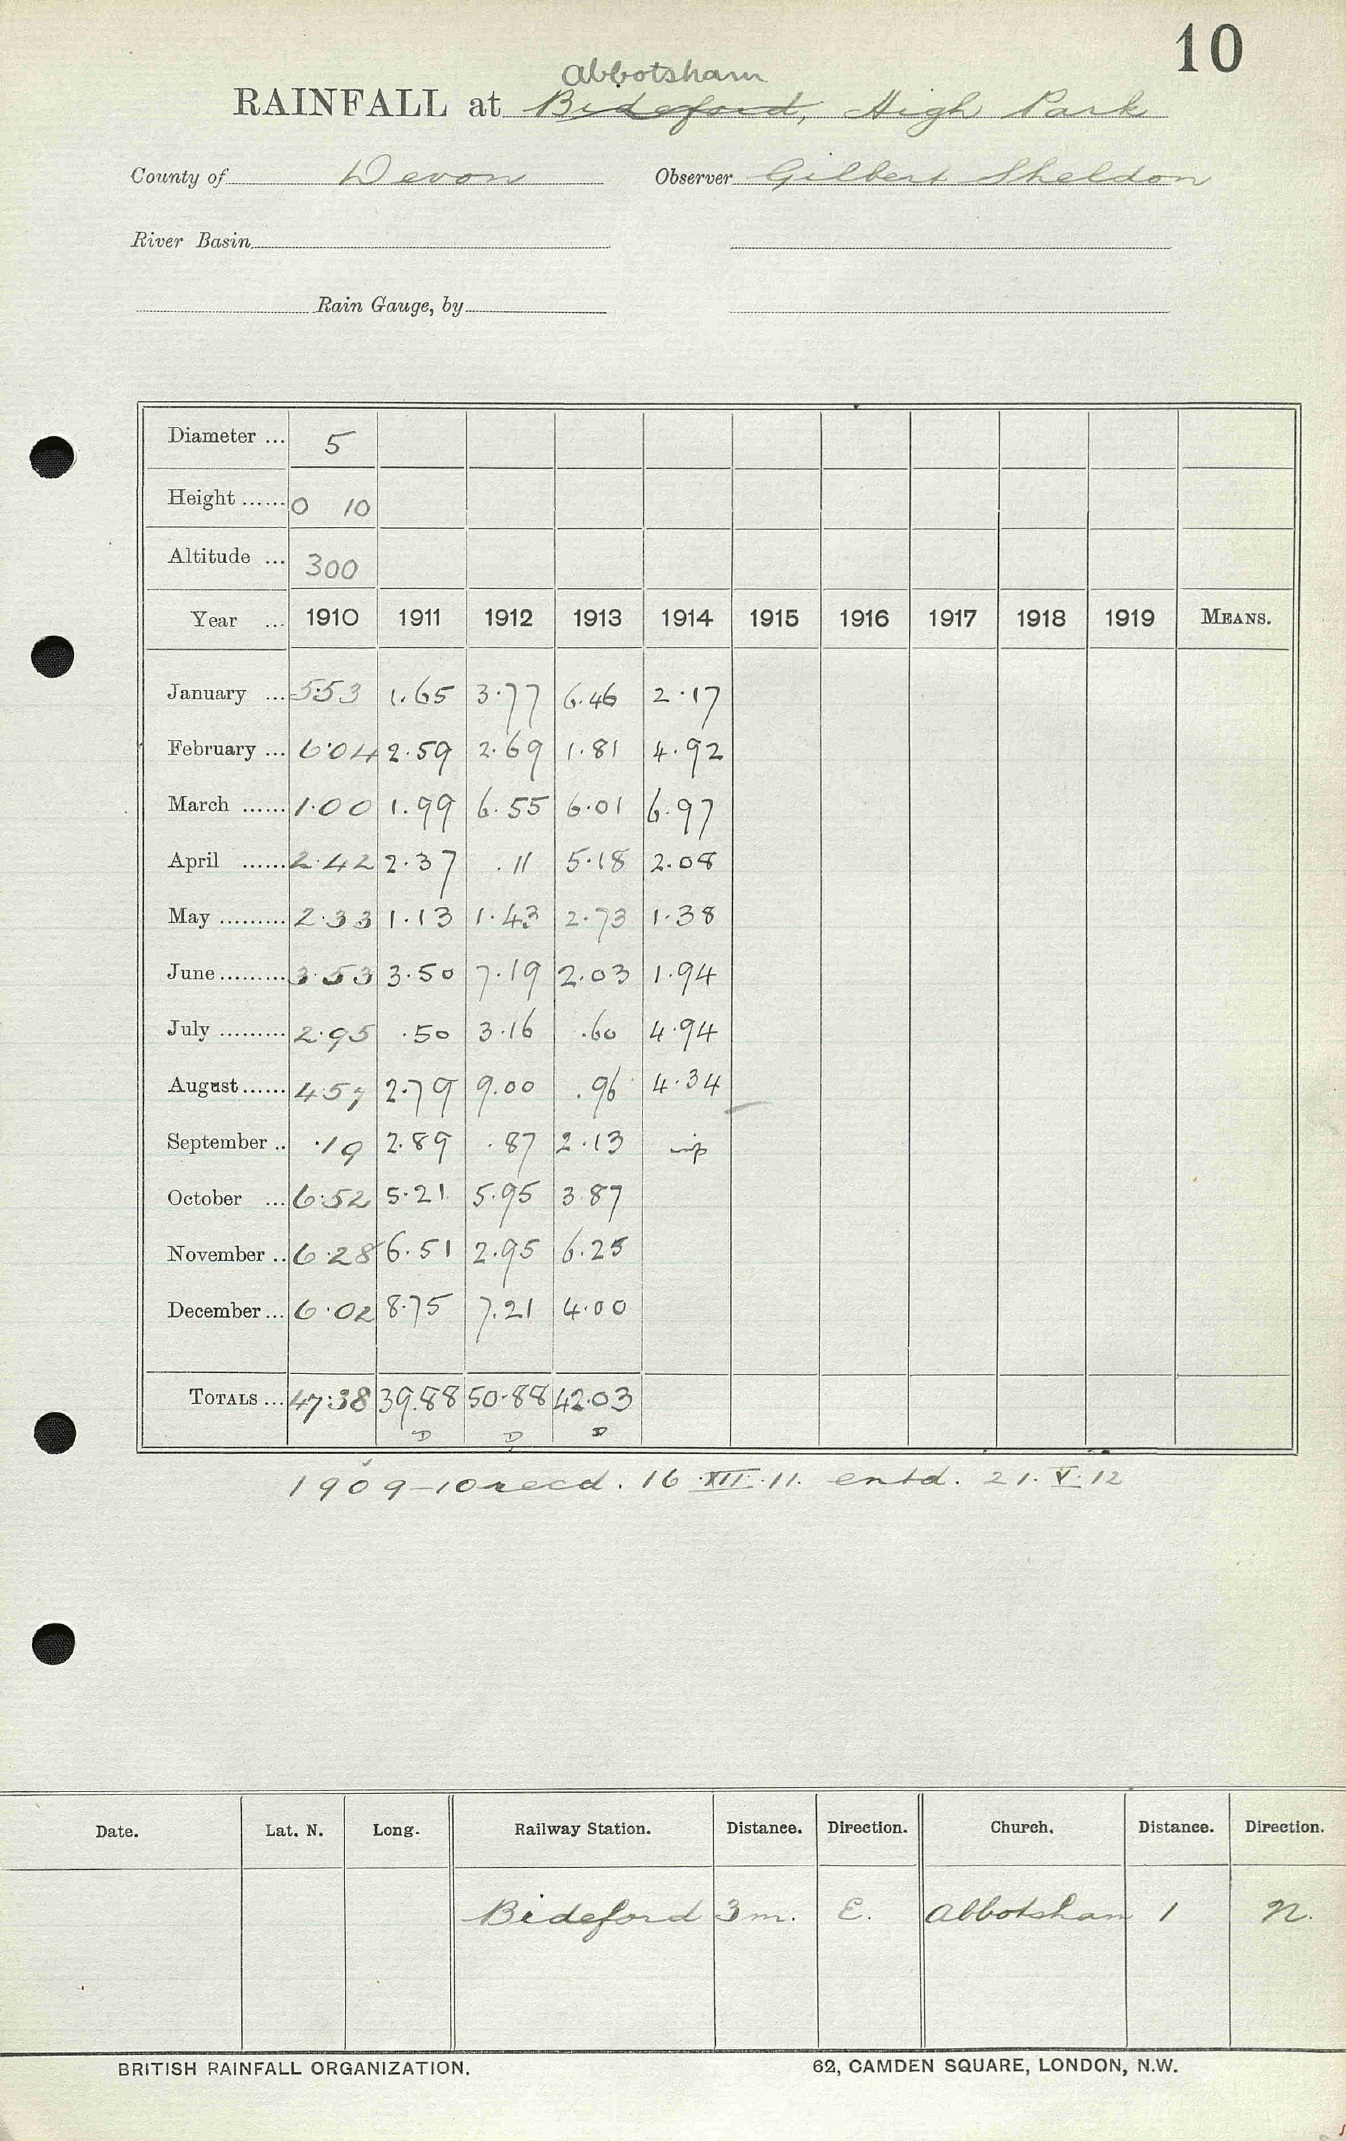 10
Abbotsham
RAINFALL at Bideford, High Park
County of Devon Observer Gilbert Sheldon
River Basin
Rain Gauge, by
Diameter ... 5
Height ...... 0 10
Altitude ... 300
Year ... 1910 1911 1912 1913 1914 1915 1916 1917 1918 1919 MEANS.
January ... 5.53 1.65 3.77 6.46 2.17
February ... 6.04 2.59 2.69 1.81 4.92
March ...... 1.00 1.99 6.55 6.01 6.97
April ...... 2.42 2.37 .11 5.18 2.08
May ......... 2.33 1.13 1.43 2.73 1.38
June ......... 3.53 3.50 7.19 2.03 1.94
July ......... 2.95 .50 3.16 .60 4.94
August ...... 4.57 2.79 9.00 .96 4.34
September .. .19 2.89 .87 2.13
October ... 6.52 5.21 5.95 3.87
November .. 6.28 6.51 2.95 6.25
December ... 6.02 8.75 7.21 4.00
TOTALS ... 47.38 39.88 50.88 42.03
D D D
1909-10 recd. 16.XII.11. entd. 21.V.12
Date. Lat. N. Long. Railway Station. Distance. Direction. Church. Distance. Direction.
Bideford 3 m. E. Abbotsham 1 N.
BRITISH RAINFALL ORGANIZATION. 62, CAMDEN SQUARE, LONDON, N.W.